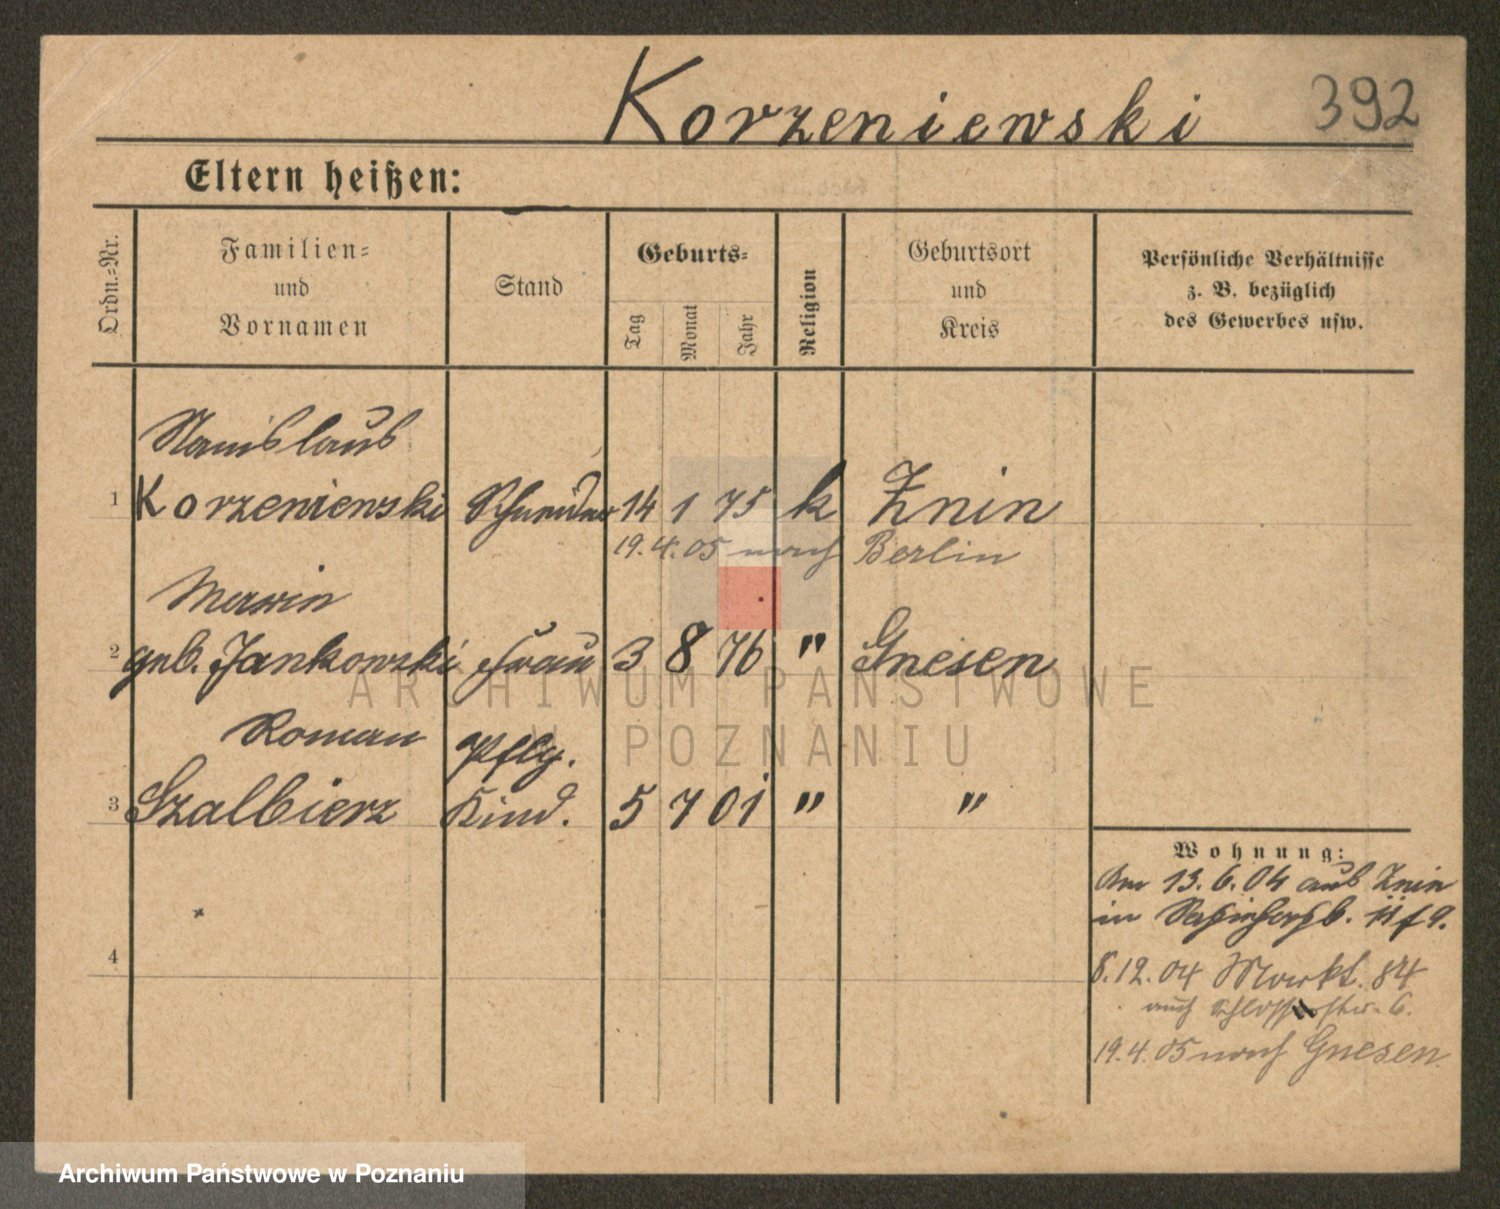 Korzeniewski 392
Eltern heißen:
Ordn.-Nr.
Familien-
und
Vornamen
Stand
Geburts-
Tag
Monat
Jahr
Religion
Geburtsort
und
Kreis
Persönliche Verhältnisse
z. B. bezüglich
des Gewerbes usw.
Stanislaus
1 Korzeniewski Schneider 14 1 75 k Znin
19. 4. 05 nach Berlin
2 geb. Jankowski Frau 3 8 76 " Gnesen
Roman Pfleg.
3 Szalbierz Kind. 5 7 01 " "
4
Wohnung:
Am 13. 6. 04 aus Znin
in
8. 12. 04 Markt. 84
auch Schlosserstr. 6.
19. 4. 05 nach Gnesen
ARCHIWUM PAŃSTWOWE
W POZNANIU
Archiwum Państwowe w Poznaniu